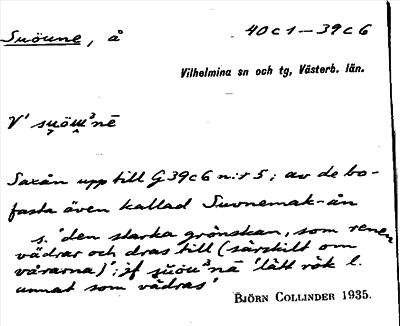 Suöune, å 40c1–39c6
Vilhelmina sn och tg, Västerb. län.
V' su̯öu̯ᵚnē
Saxån upp till G 39c6 n:r 5; av de bo-
fasta även kallad Suvnemak-ån
s. 'den starka grönskan, som renen
vädrar och dras till (särskilt om
vårarna)'; jf su̯öuᵚnā 'lätt rök l.
annat som vädras'
BJÖRN COLLINDER 1935.